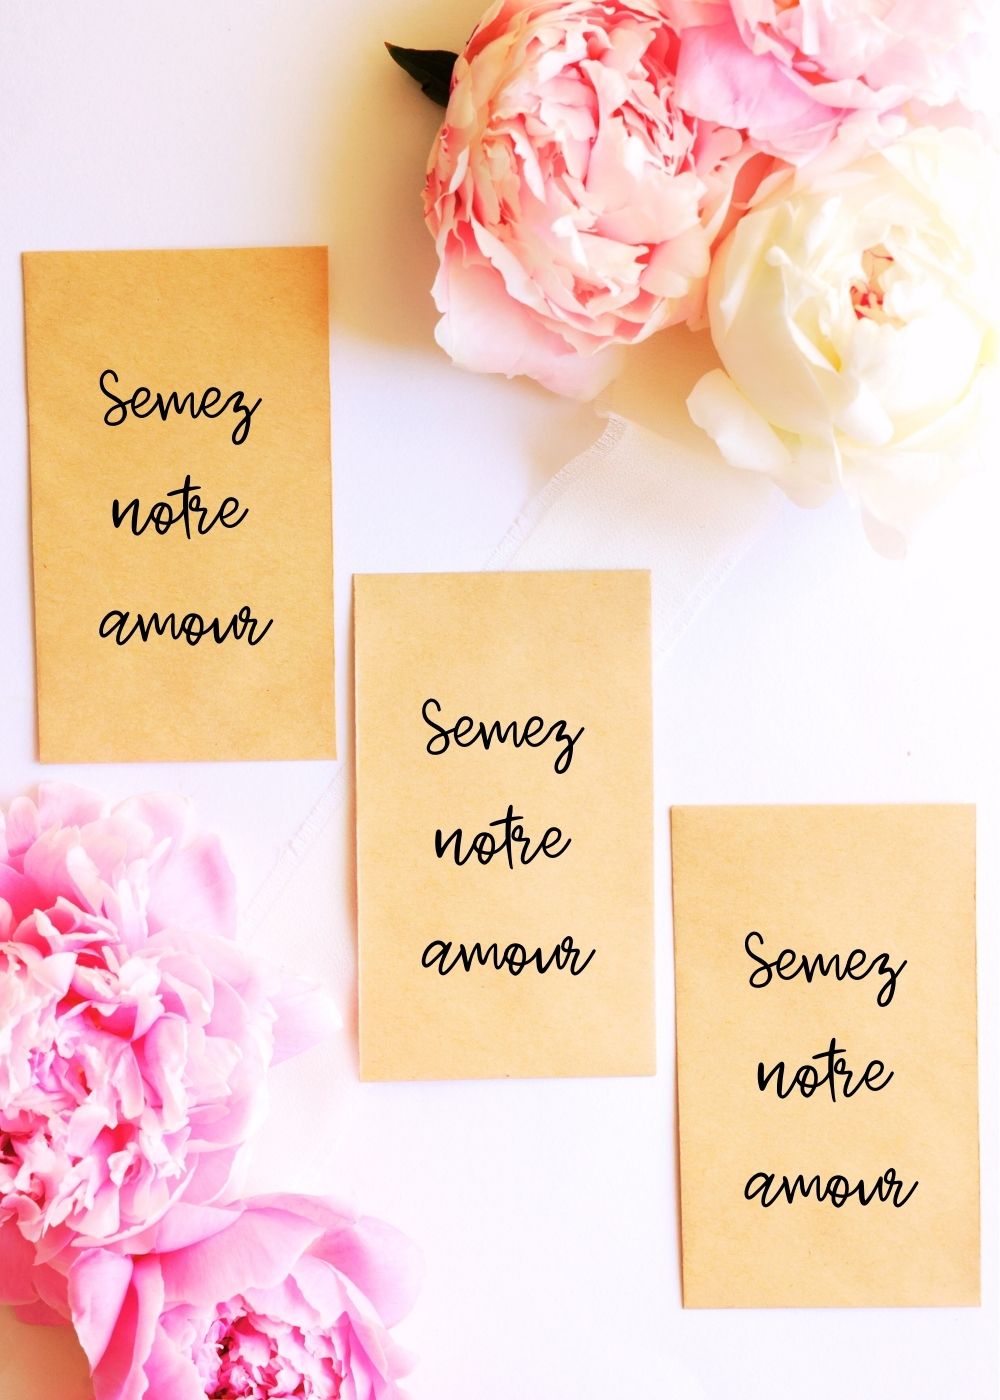 Semez
notre
amour
Semez
notre
amour
Semez
notre
amour